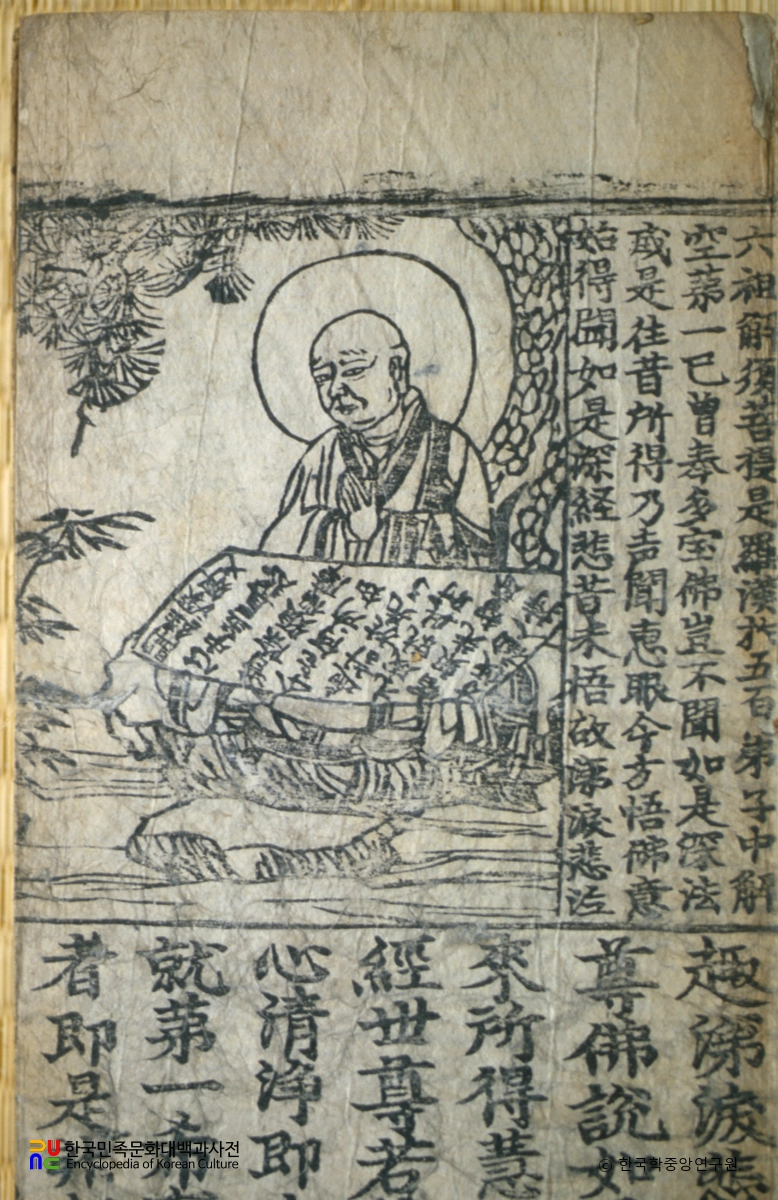 六祖解須菩提是羅漢於五百弟子中解
空第一已曾奉多宝佛豈不聞如是深法
或是往昔所得乃声聞恵眼今方悟佛意
始得聞如是深経悲昔未悟故涕淚悲泣
趣涕淚悲
尊佛說如
來所得慧
經世尊若
心清淨即
就第一希
者即是
한국민족문화대백과사전
Encyclopedia of Korean Culture
© 한국학중앙연구원